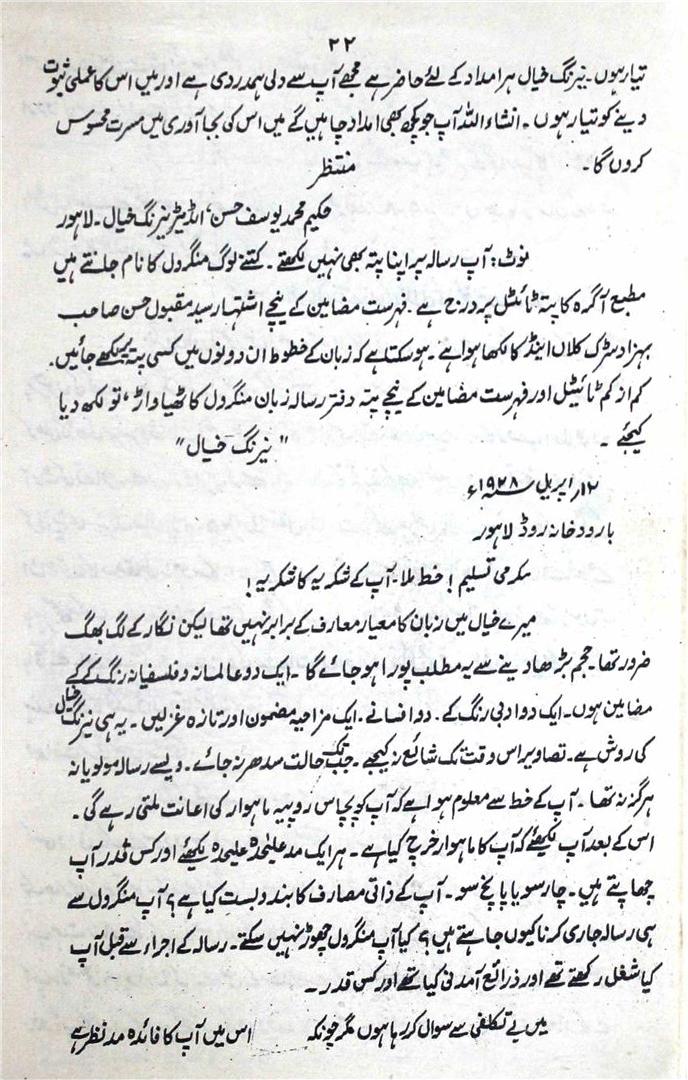 ۲۲
تیار ہوں۔ نیرنگ خیال ہر امداد کے لئے حاضر ہے مجھے آپ سے دلی ہمدردی ہے اور میں اس کا عملی ثبوت
دینے کو تیار ہوں۔ انشاء اللہ آپ جو کچھ بھی امداد چاہیں گے میں اس کی بجا آوری میں مسرت محسوس
کروں گا۔
منتظر
حکیم محمد یوسف حسن، اڈیٹر نیرنگ خیال۔ لاہور
نوٹ: آپ رسالہ پر اپنا پتہ بھی نہیں لکھتے۔ کتنے لوگ منگرول کا نام جانتے ہیں
مطبع آگرہ کا پتہ ٹائٹل پر درج ہے۔ فہرست مضامین کے نیچے اشتہار سید مقبول حسن صاحب
بہزاد سٹرک کلاں اینڈ کا لکھا ہوا ہے۔ ہو سکتا ہے کہ زبان کے خطوط ان دونوں میں کسی پتہ پر بھیجے جائیں۔
کم از کم ٹائیٹل اور فہرست مضامین کے نیچے پتہ دفتر رسالہ زبان منگرول کاٹھیاواڑ، تو لکھ دیا
کیجئے۔
"نیرنگ خیال"
۱۲ر اپریل سنہ ۱۹۲۸ء
بارود خانہ روڈ لاہور
مکرمی تسلیم! خط ملا۔ آپ کے شکریہ کا شکریہ!
میرے خیال میں زبان کا معیار معارف کے برابر نہیں تھا لیکن نگار کے لگ بھگ
ضرور تھا۔ حجم بڑھا دینے سے یہ مطلب پورا ہو جائے گا۔ ایک دو عالمانہ و فلسفیانہ رنگ کے کے
مضامین ہوں۔ ایک دو ادبی رنگ کے۔ دو افسانے۔ ایک مزاحیہ مضمون اور تازہ غزلیں۔ یہ ہی نیرنگ خیال
کی روش ہے۔ تصاویر اس وقت تک شائع نہ کیجے۔ جب تک حالت سدھر نہ جائے۔ ویسے رسالہ مولویانہ
ہرگز نہ تھا۔ آپ کے خط سے معلوم ہوا ہے کہ آپ کو پچاس روپیہ ماہوار کی اعانت ملتی رہے گی۔
اس کے بعد آپ لکھیئے کہ آپ کا ماہوار خرچ کیا ہے۔ ہر ایک مد علیٰحدہ علیٰحدہ لکھیئے اور کس قدر آپ
چھاپتے ہیں۔ چار سو یا پانچ سو۔ آپ کے ذاتی مصارف کا بندوبست کیا ہے؟ آپ منگرول سے
ہی رسالہ جاری کرنا کیوں چاہتے ہیں؟ کیا آپ منگرول چھوڑ نہیں سکتے۔ رسالہ کے اجرار سے قبل آپ
کیا شغل رکھتے تھے اور ذرائع آمدنی کیا تھے اور کس قدر۔
میں بے تکلفی سے سوال کر رہا ہوں مگر چونکہ اس میں آپ کا فائدہ مدنظر ہے